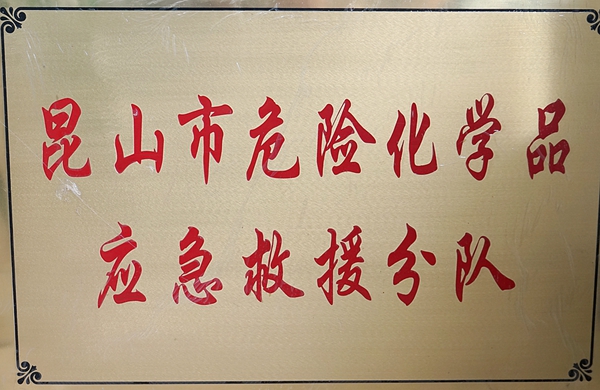 昆山市危险化学品
应急救援分队